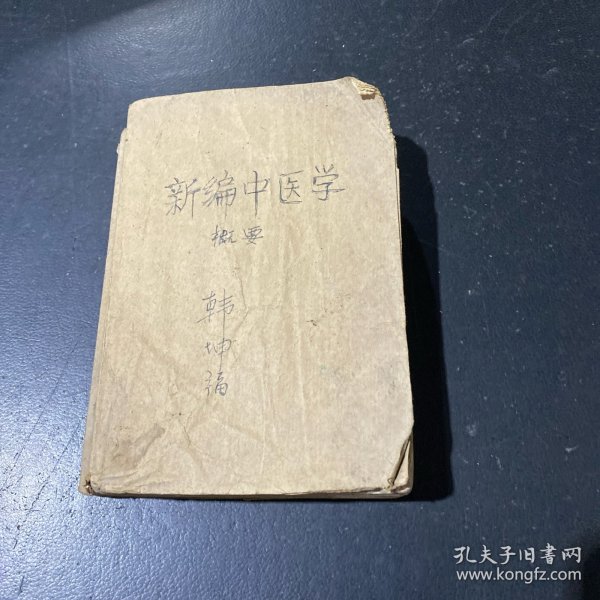 新编中医学
概要
韩
坤
福
孔夫子旧书网
www.kongfz.com